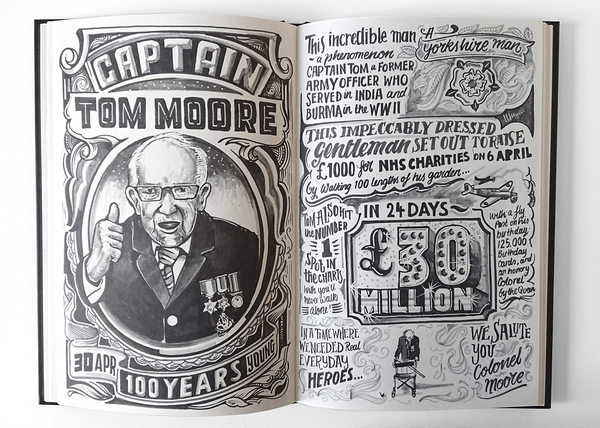 CAPTAIN
TOM MOORE
30 APR
100 YEARS
YOUNG
This incredible man
a phenomenon
CAPTAIN TOM a FORMER
ARMY OFFICER WHO
SERVED in INDIA and
BURMA in the WW II
A
Yorkshire man
THIS IMPECCABLY DRESSED
Gentleman SET OUT TO RAISE
£1000 for NHS CHARITIES on 6 APRIL
by walking 100 lengths of his garden...
TOM ALSO HIT
the NUMBER
1
SPOT in
the CHARTS
with you'll
never walk
alone!
IN 24 DAYS
£30
MILLION
with a fly
Past on his
birthday
125,000
Birthday
cards, and
an honory
Colonel
by the Queen
IN A TIME WHERE
WE NEEDED Real
EVERYDAY
HEROES...
WE SALUTE
YOU
Colonel
Moore